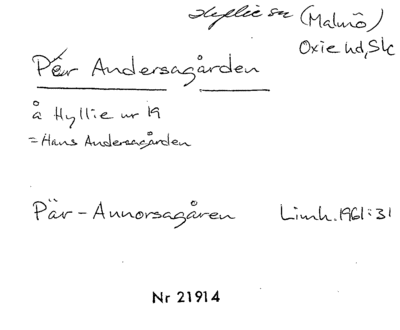 Hyllie sn (Malmö)
Oxie hd, Sk
Pär Andersagården
å Hyllie nr 19
= Hans Andersagården
Pär-Annorsagåren Limh. 1961:31
Nr 21914